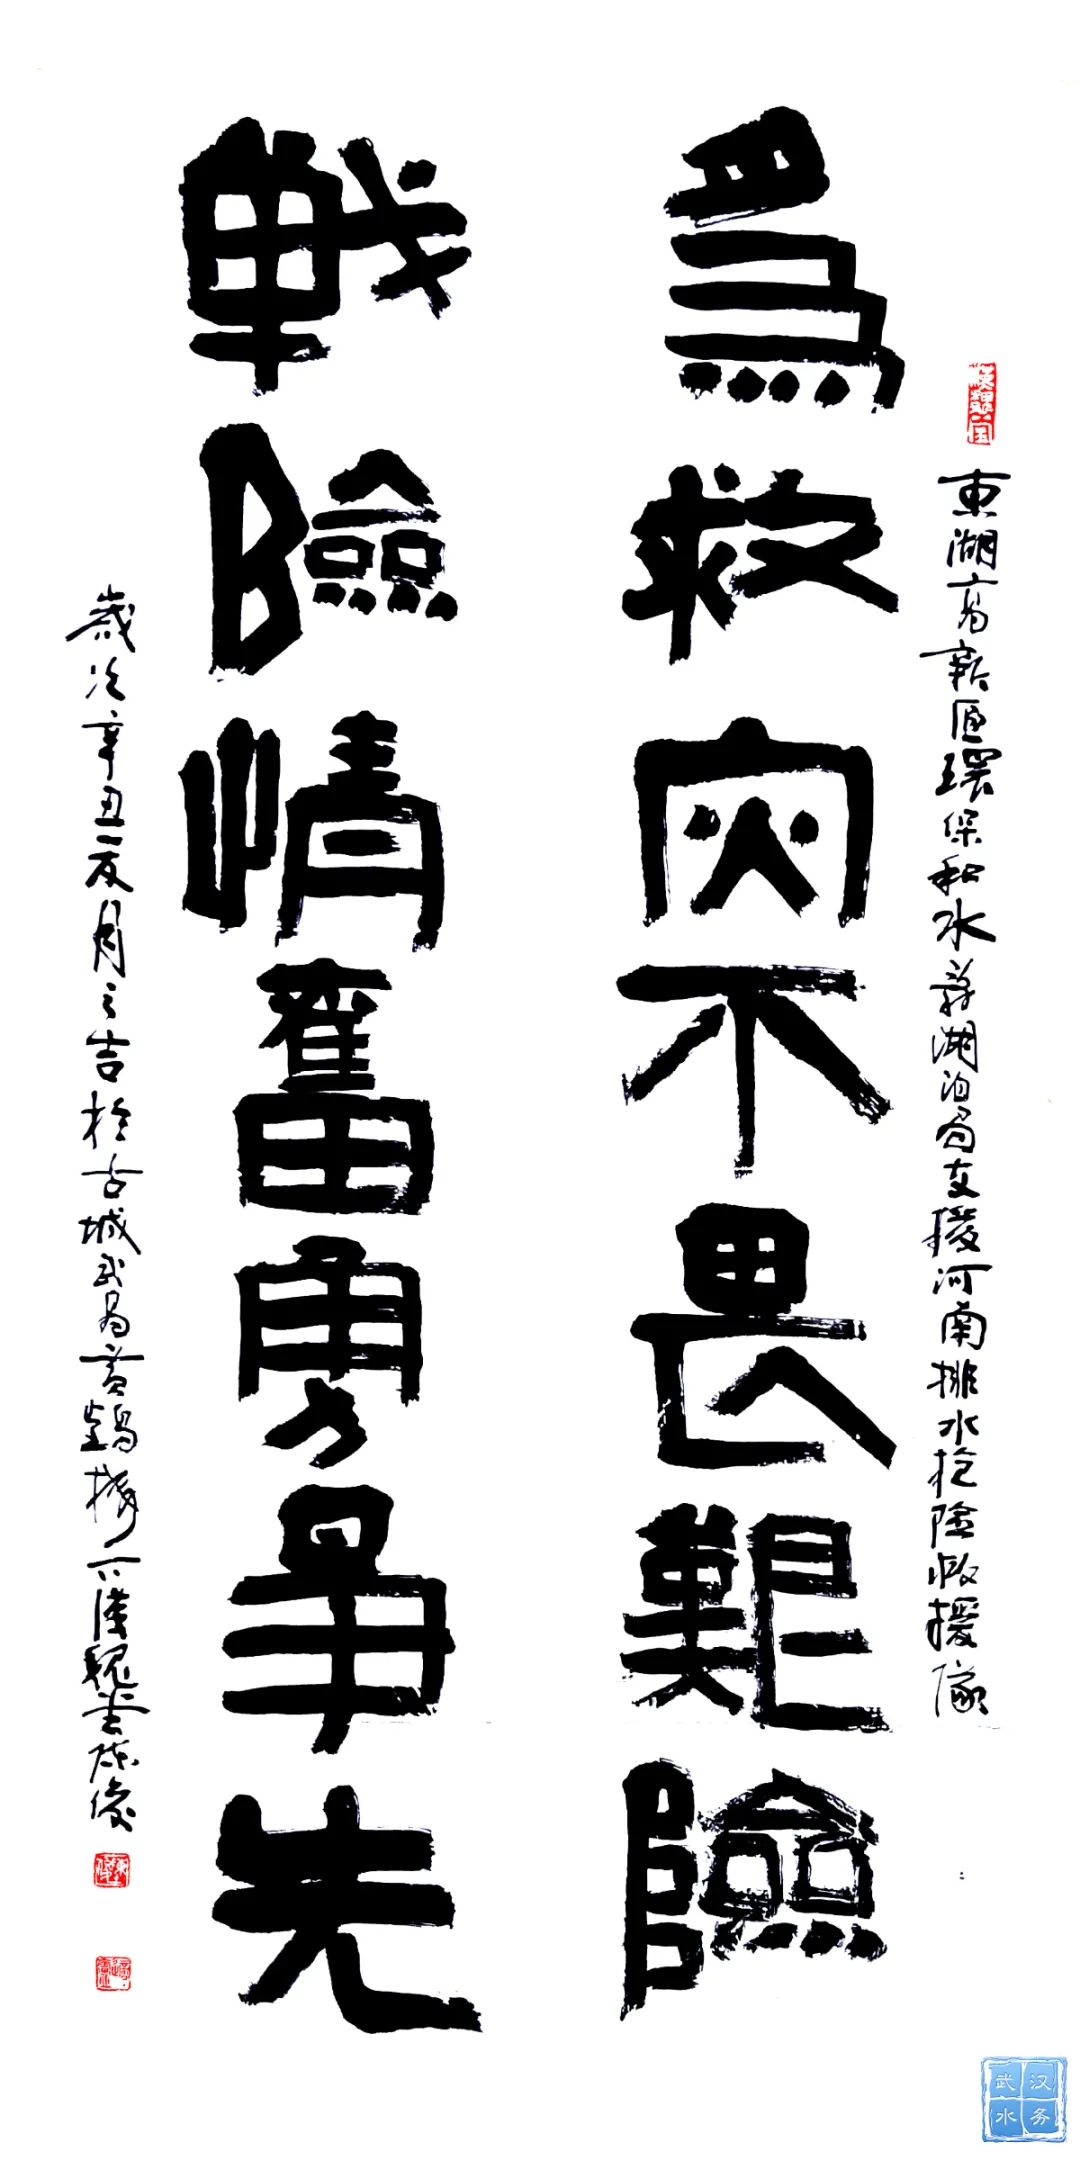 東湖高新區環保和水務湖泊局支援河南排水抢险救援隊
為救災不畏艱險
戰險情奮勇争先
歲次辛丑夏月之吉於古城武昌黄鶴樓下漢魏堂陈俊
武汉
水务